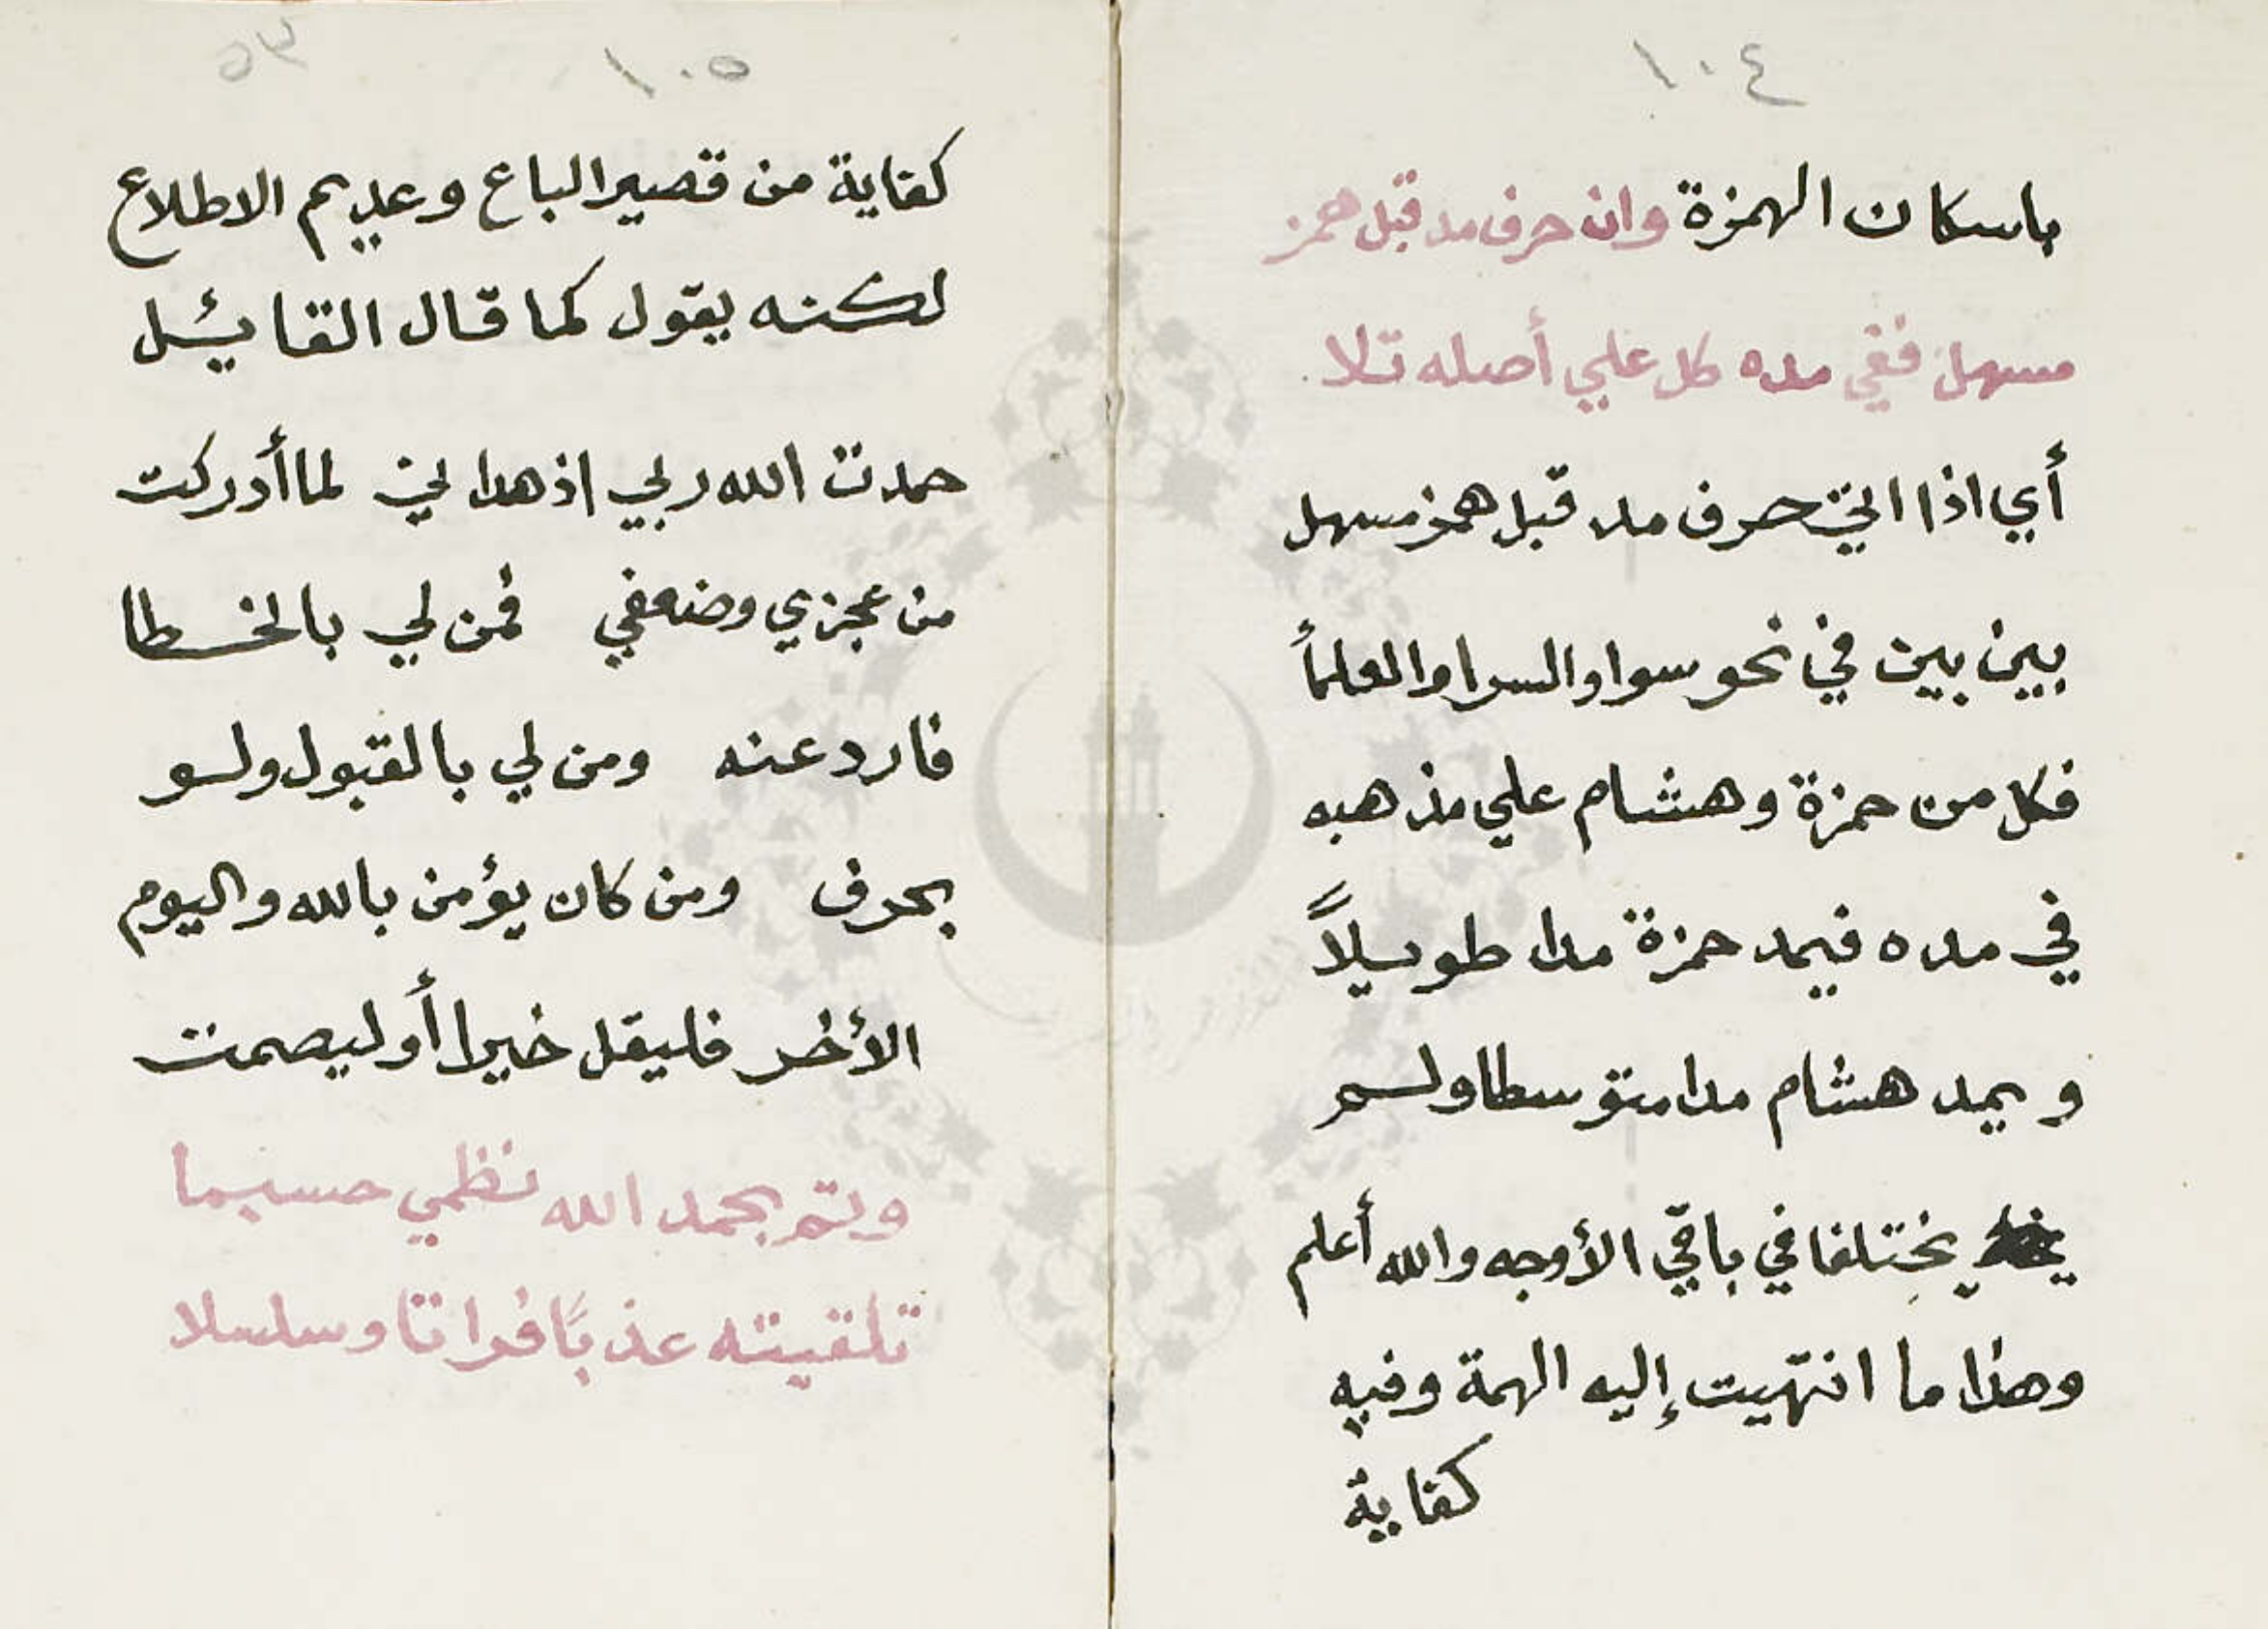 ١٠٤
باسكان الهمزة وان حرف مد قبل همز
مسهل ففي مده كل علي أصله تلا
أي اذا اتي حرف مد قبل همز مسهل
بين بين في نحو سوا والسرا والعلمأ
فكل من حمزة وهشام علي مذهبه
في مده فيمد حمزة مدا طويلاً
ويمد هشام مدا متوسطا ولم
يختلفا في باقي الأوجه والله أعلم
وهذا ما انتهيت إليه الهمة وفيه
كفاية
١٠٥ ٥٣
كفاية من قصير الباع وعديم الاطلاع
لكنه يقول كما قال القايئل
حمدت الله ربي اذ هداني لما أدركت
من عجزي وضعفي فمن لي بالخطا
فارد عنه ومن لي بالقبول ولو
بحرف ومن كان يؤمن بالله واليوم
الأخر فليقل خيرا أو ليصمت
وتم بحمد الله نظمي حسبما
تلقيته عذباً فراتا وسلسلا